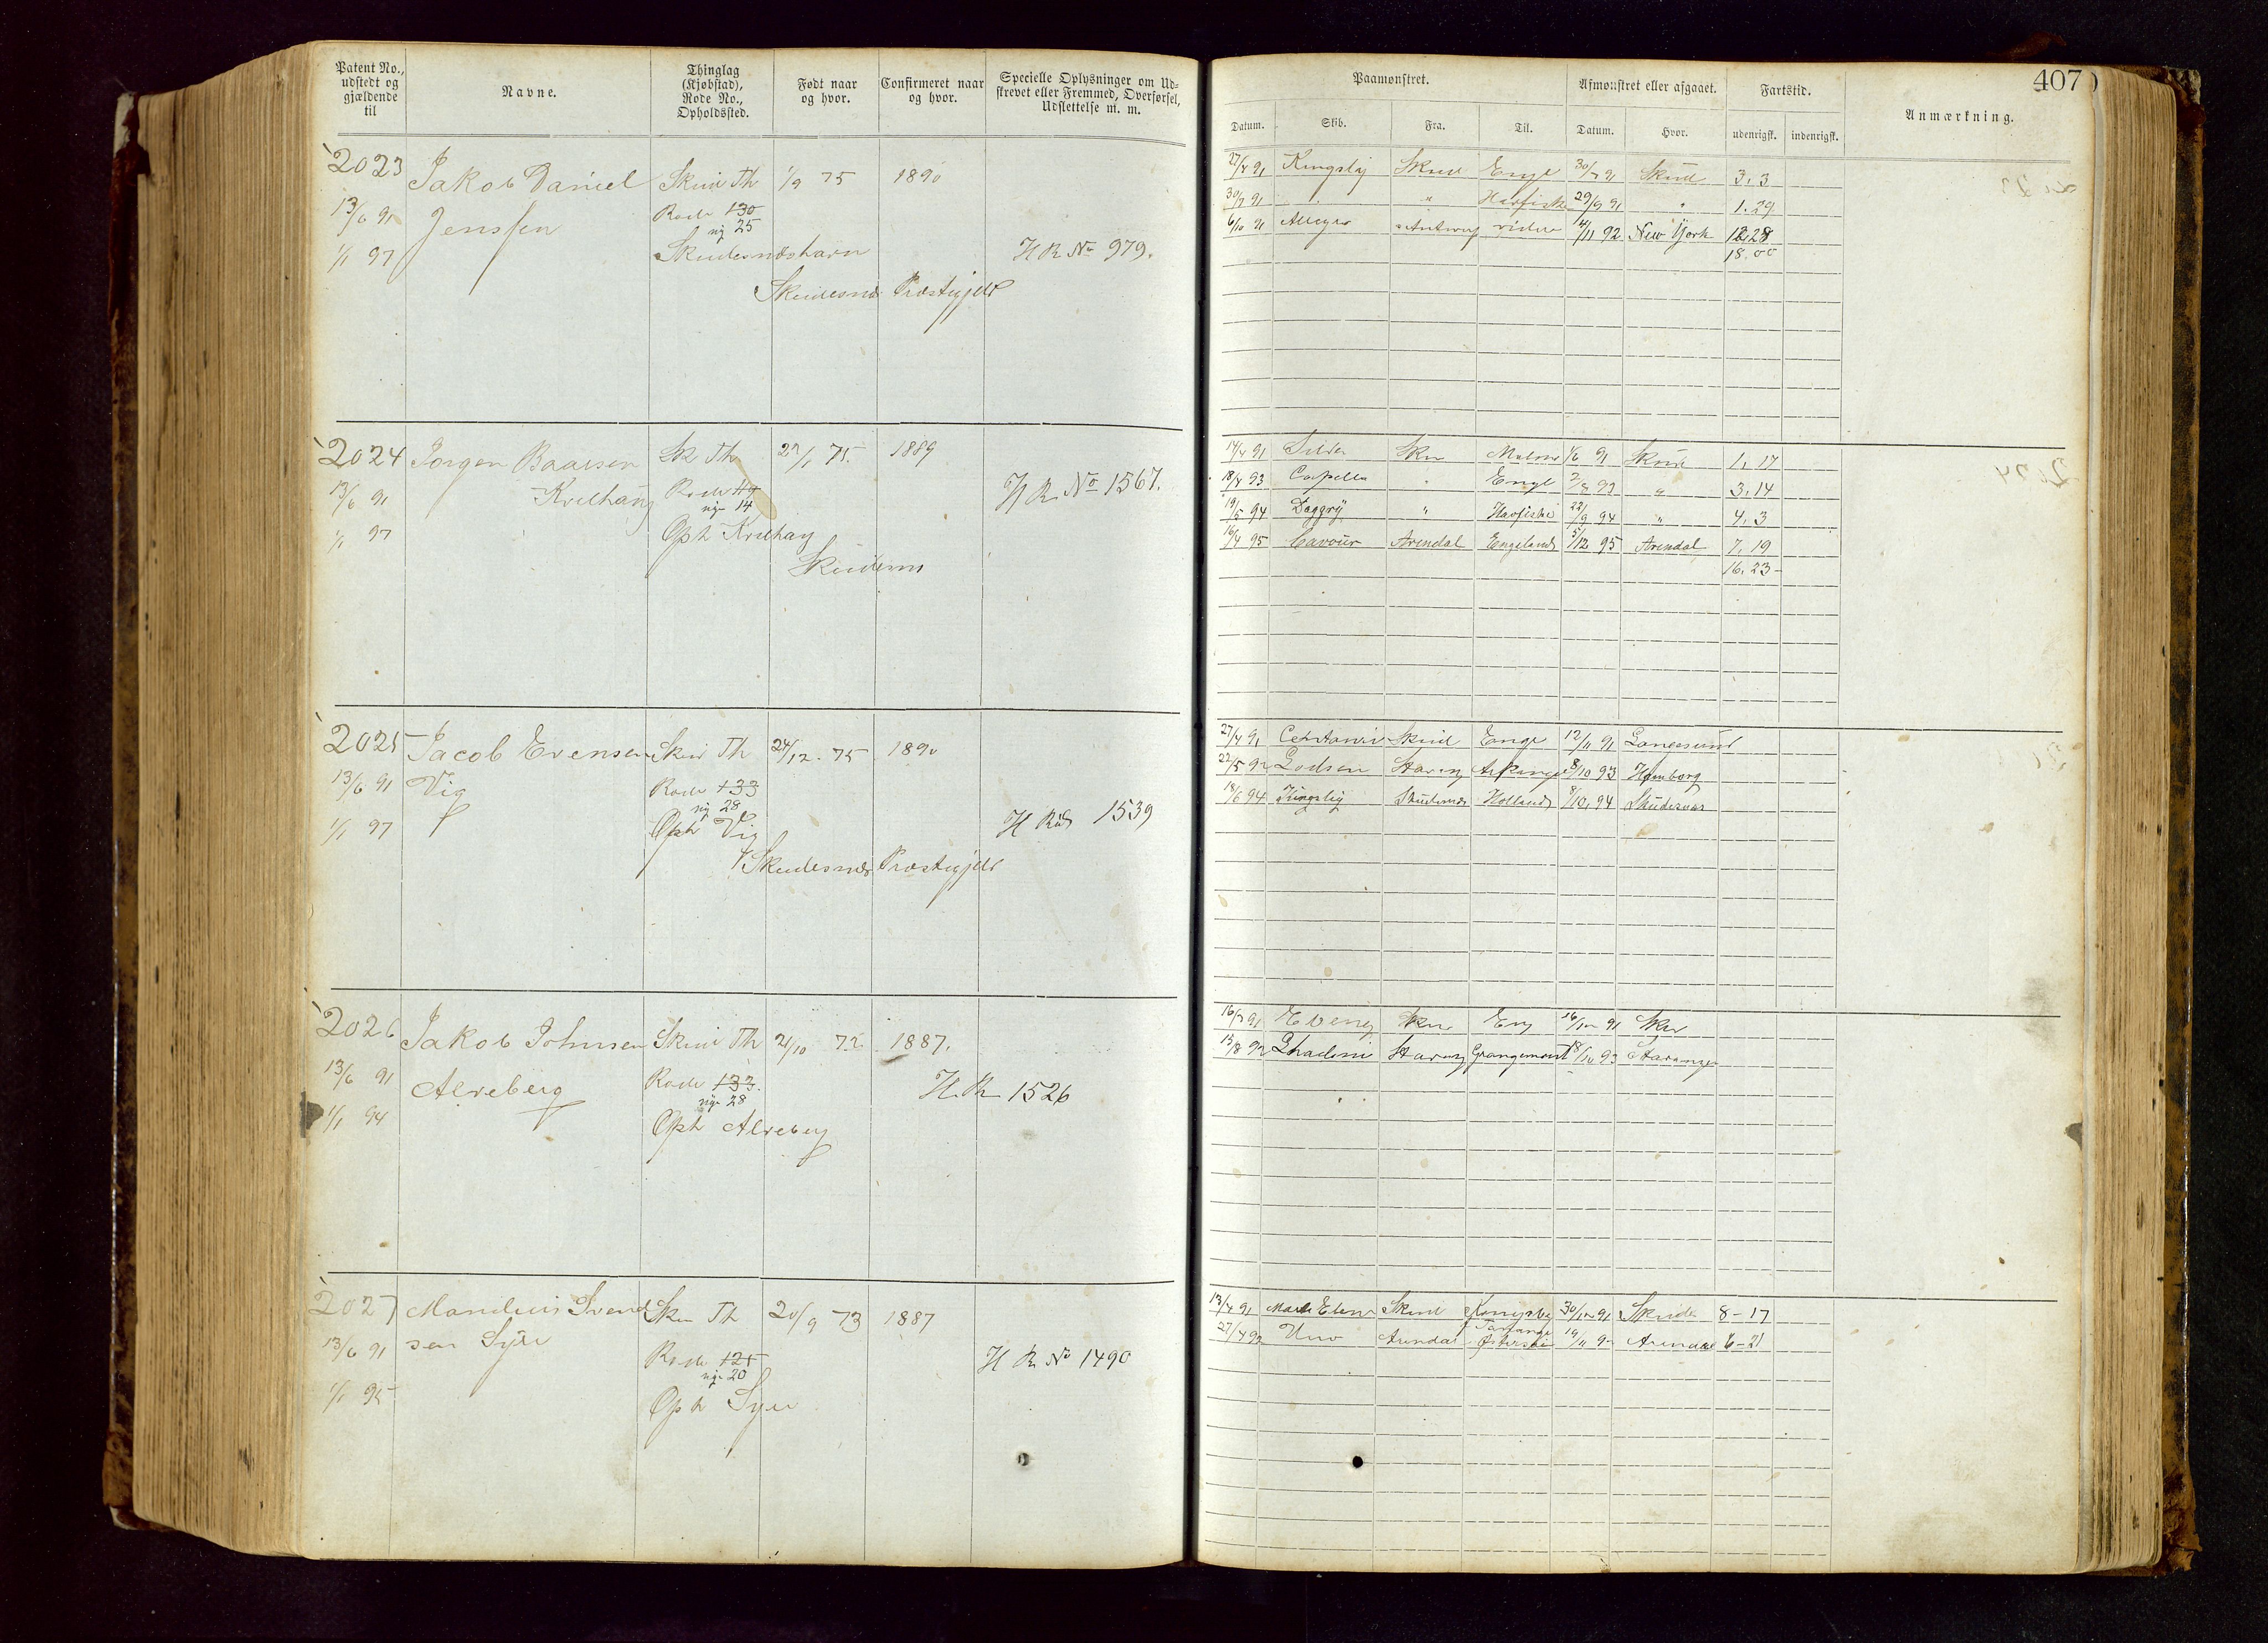 Patent No., udstedt og gjældende til
Navne.
Thinglag (Kjøbstad), Rode No., Opholdssted.
Født naar og hvor.
Confirmeret naar og hvor.
Specielle Oplysninger om Udskrevet eller Fremmed, Overførsel, Udslettelse m. m.
2023 Jakob Daniel Skud Th 1/9 75 1890
13/6 91 Jenssen Rode 130
ny 25
1/1 97 Skudesnæshavn H R No 979.
Skudesnæs Præstegjeld
2024 Jørgen Baarsen Sk Th 27/1 75. 1889
13/6 91 Kvilhaug Rode 119 H R No 1567.
nye 14
1/1 97 Oph Kvilhaug
Skudesnæs
2025 Jacob Evensen Skud Th 24/12. 75 1890
13/6 91 Vig Rode 133
ny 28
1/1 97 Oph Vig H Rud 1539
Skudesnæs Præstegjeld
2026 Jakob Johnsen Skud Th 21/10 72 1887.
13/6 91 Alveberg Rode 133. H. R. 1526
nye 28
1/1 94 Oph Alveberg
2027 Mandius Svend Sku Th 20/9 73 1887
13/6 91 sen Syre Rode 125 H R No 1490
nye 20
1/1 95 Oph Syre
407
Paamønstret.
Afmønstret eller afgaaet.
Fartstid.
Anmærkning.
Datum. Skib. Fra. Til. Datum. Hvor. udenrigsk. indenrigsk.
27/4 91 Kingsly Skud Engl 30/7 91 Skud 3. 3
30/7 91 " Havfiske 29/9 91 " 1. 29
6/10 91 Allegro Antwerp videre 4/11 92 New York 12.28
18.00
14/4 91 Silden Sku Malmø 1/6 91 Skud 1. 17
18/4 93 Capella " Engl 2/8 93 " 3.14
19/5 94 Daggry " Havfiske 22/9 94 " 4. 3
16/4 95 Cavour Arendal England 5/12 95 Arendal 7. 19
16. 23
27/4 91 Skud Engl 12/11 91 Langesund
22/5 92 Godsen Stavang Arkangel 8/10 93 Hamborg
18/6 94 Kingsly Skudesnæs Holland 8/10. 94 Skudesnæs
16/3 91 Eveneg Sku Eng 16/12 91 Sku
13/8 92 Ghadeni Stavang Grangemont 18/10 93 Stavanger
13/4 91 Marthe Elena Skud 30/12 91 Skude 8 - 17
27/4 92 Uno Arendal Østersøe 19/11 92 Arendal 6 - 21